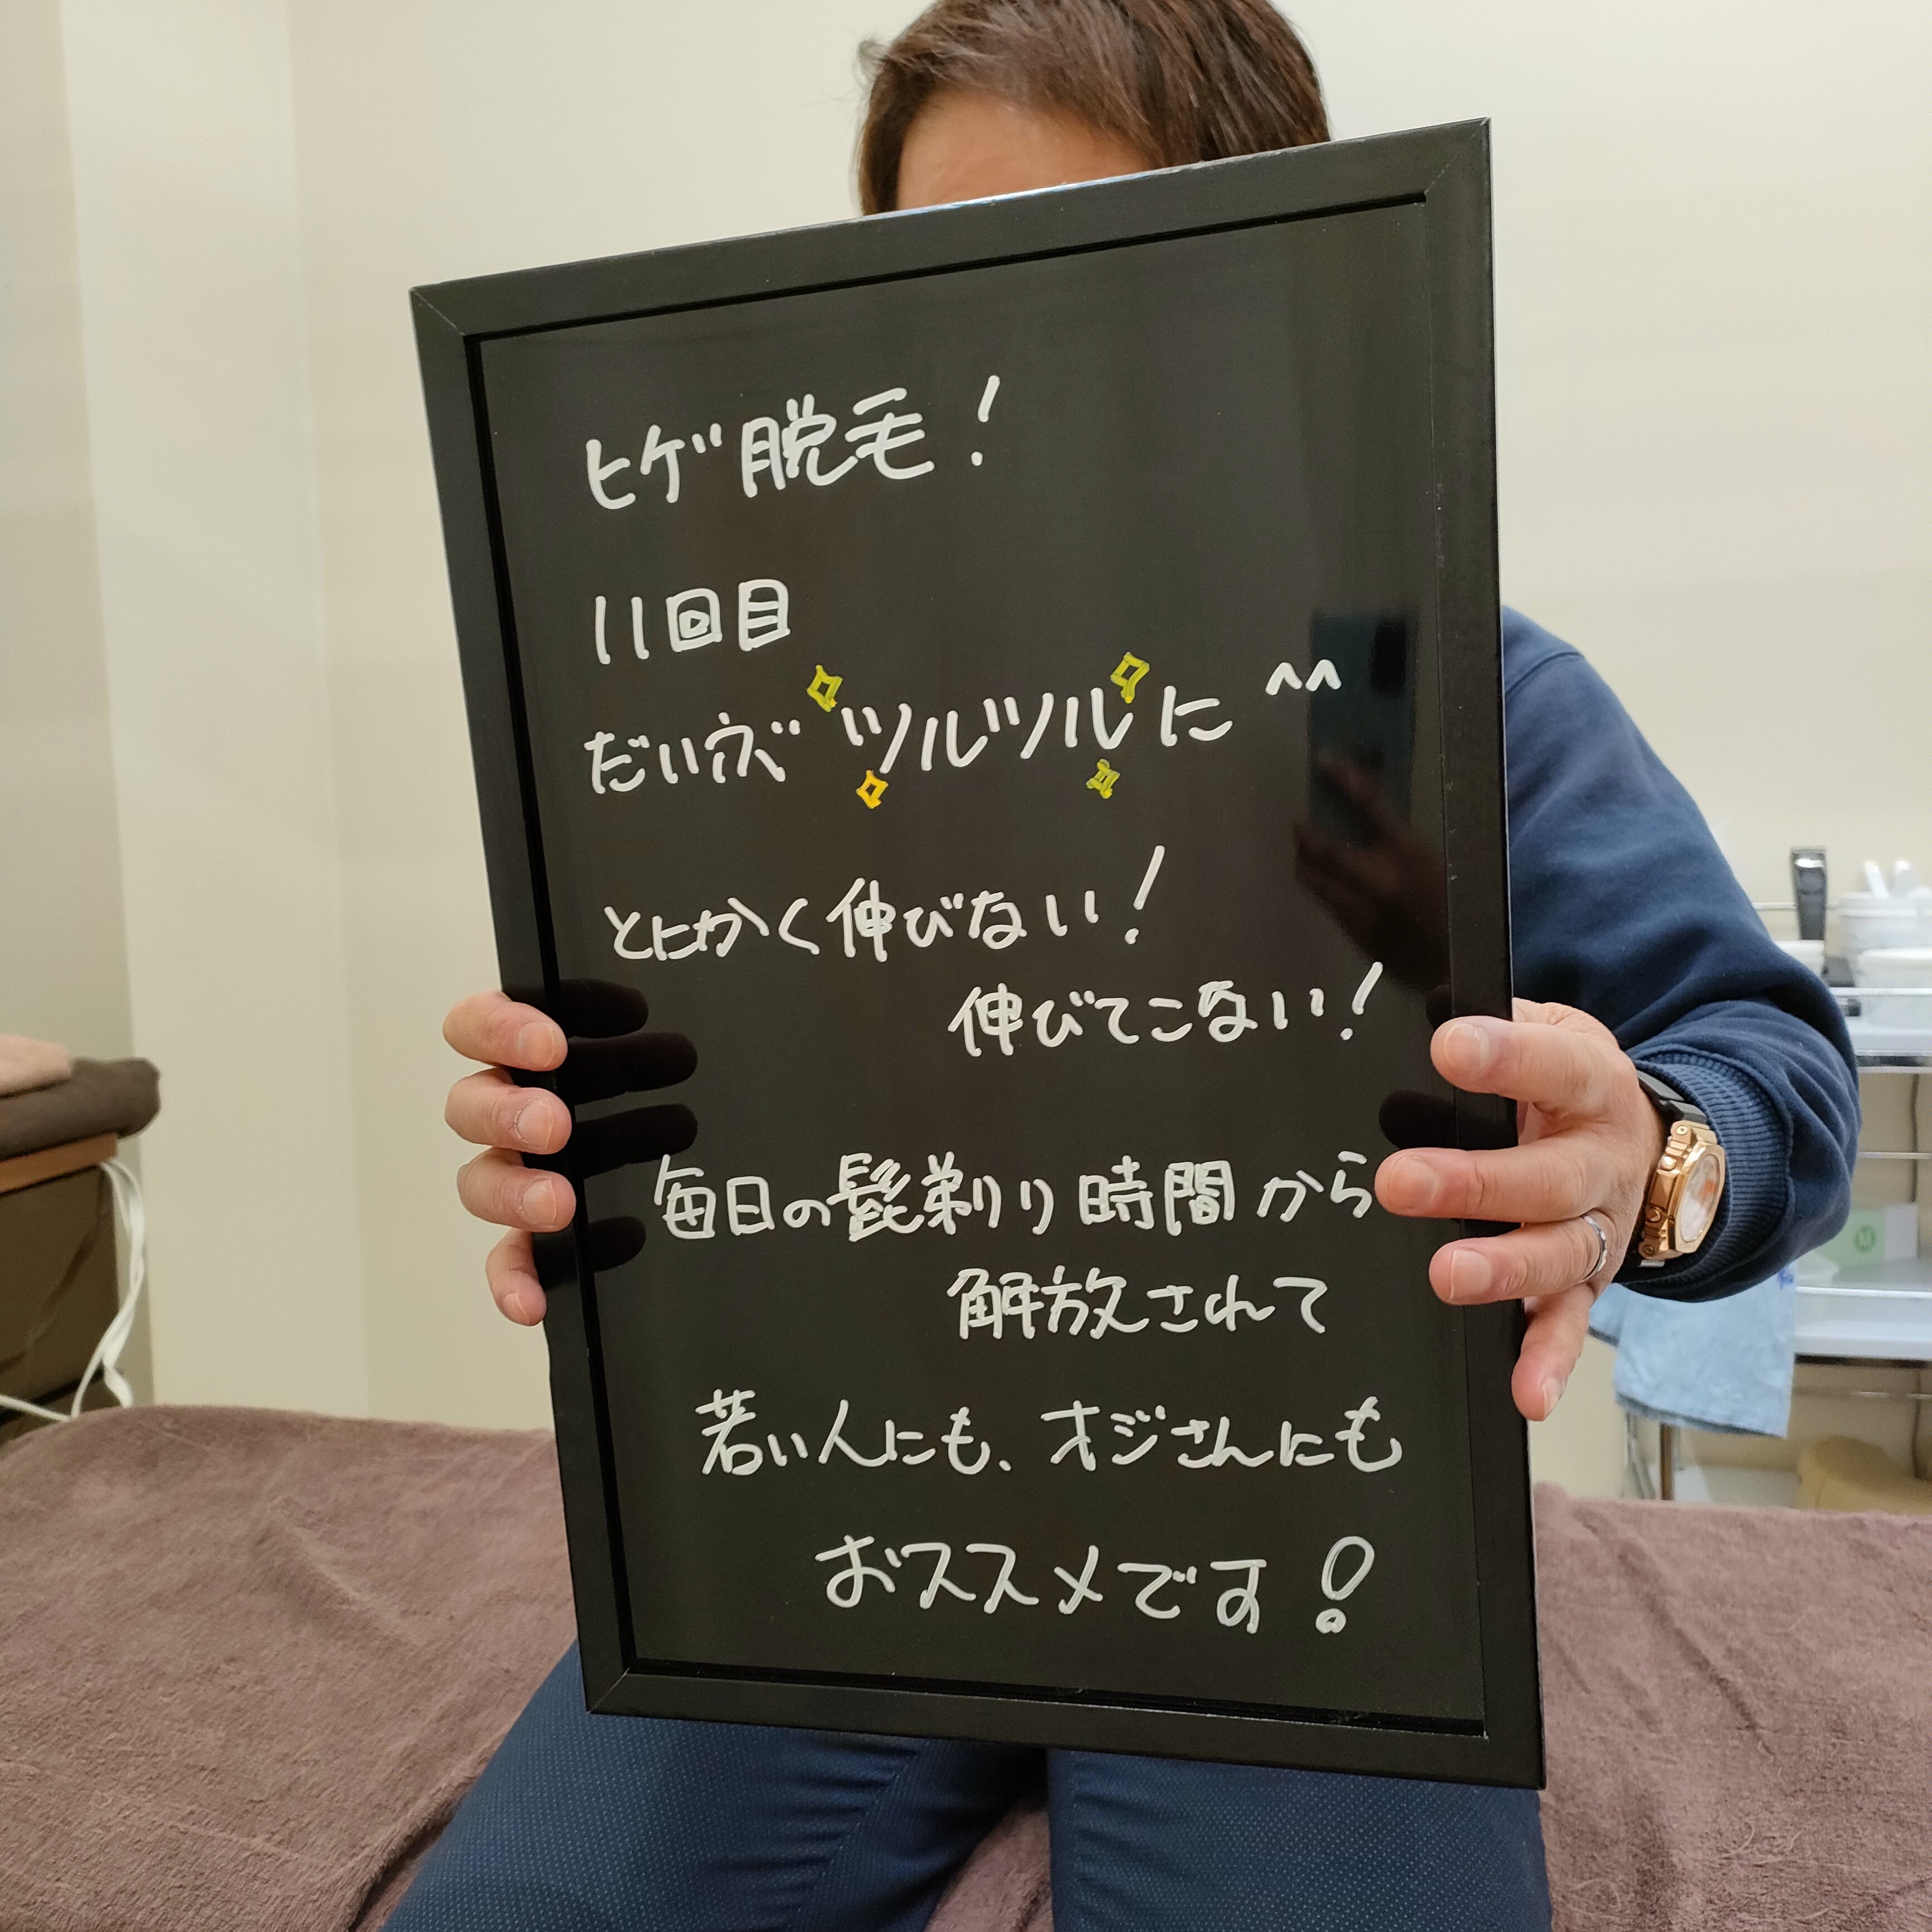 ヒゲ脱毛！
11回目
だいぶツルツルに^^
とにかく伸びない！
伸びてこない！
毎日の髭剃り時間から
解放されて
若い人にも、オジさんにも
おススメです！
M